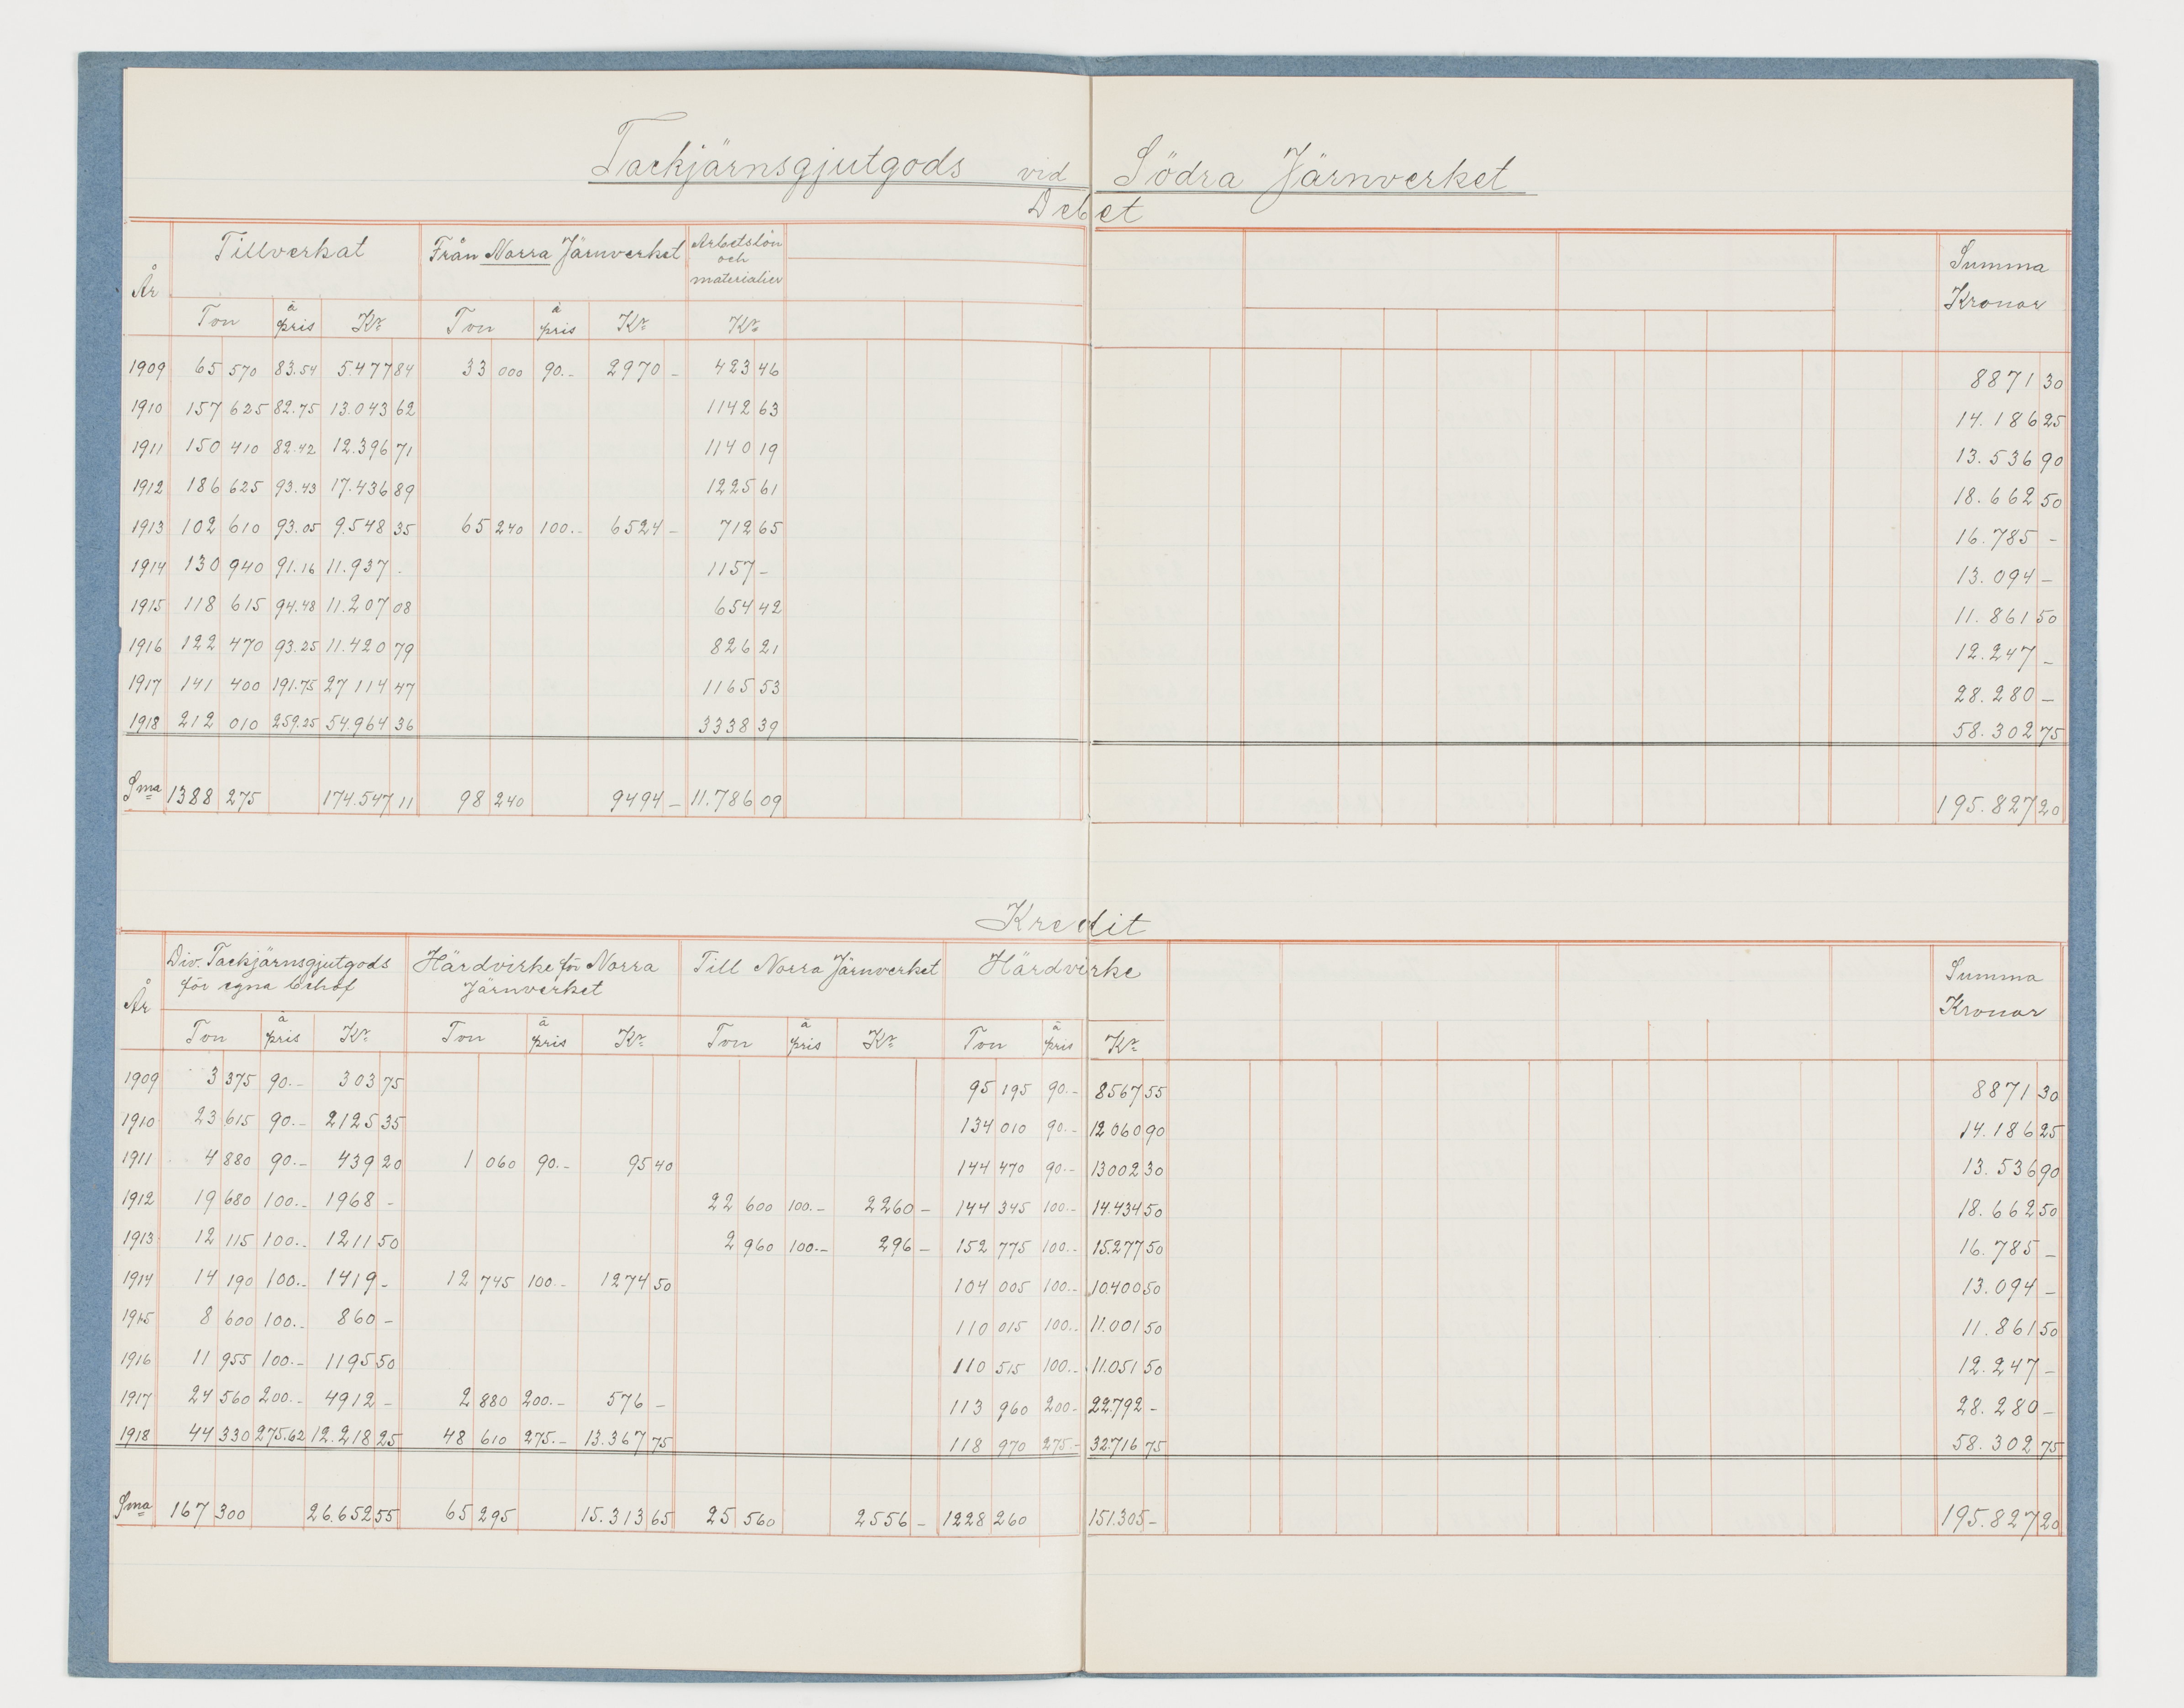 Tackjärnsgjutgods vid Södra Järnverket
Debet
År Tillverkat Från Norra Järnverket Arbetslön och materialier Summa Kronor
Ton à pris Kr Ton à pris Kr Kr
1909 65 570 83.54 5.477 84 33 000 90.- 2970 - 423 46 8871 30
1910 157 625 82.75 13.043 62 1142 63 14.186 25
1911 150 410 82.42 12.396 71 1140 19 13.536 90
1912 186 625 93.43 17.436 89 1225 61 18.662 50
1913 102 610 93.05 9.548 35 65 240 100.- 6524 - 712 65 16.785 -
1914 130 940 91.16 11.937 - 1157 - 13.094 -
1915 118 615 94.48 11.207 08 654 42 11.861 50
1916 122 470 93.25 11.420 79 826 21 12.247 -
1917 141 400 191.75 27 114 47 1165 53 28.280 -
1918 212 010 259.25 54.964 36 3338 39 58.302 75
Sma 1388 275 174.547 11 98 240 9494 - 11.786 09 195.827 20
Kredit
År Div. Tackjärnsgjutgods för egna behof Härdvirke för Norra Järnverket Till Norra Järnverket Härdvirke Summa Kronor
Ton à pris Kr Ton à pris Kr Ton à pris Kr Ton à pris Kr
1909 3 375 90.- 303 75 95 195 90.- 8567 55 8871 30
1910 23 615 90.- 2125 35 134 010 90.- 12 060 90 14.186 25
1911 4 880 90.- 439 20 1 060 90.- 95 40 144 470 90.- 13002 30 13.536 90
1912 19 680 100.- 1968 - 22 600 100.- 2260 - 144 345 100.- 14.434 50 18.662 50
1913 12 115 100.- 1211 50 2 960 100.- 296 - 152 775 100.- 15.277 50 16.785 -
1914 14 190 100.- 1419 - 12 745 100.- 1274 50 104 005 100.- 10.400 50 13.094 -
1915 8 600 100.- 860 - 110 015 100.- 11.001 50 11.861 50
1916 11 955 100.- 1195 50 110 515 100.- 11.051 50 12.247 -
1917 24 560 200.- 4912 - 2 880 200.- 576 - 113 960 200.- 22.792 - 28.280 -
1918 44 330 275.62 12.218 25 48 610 275.- 13.367 75 118 970 275.- 32.716 75 58.302 75
Sma 167 300 26.652 55 65 295 15.313 65 25 560 2556 - 1228 260 151.305 - 195.827 20